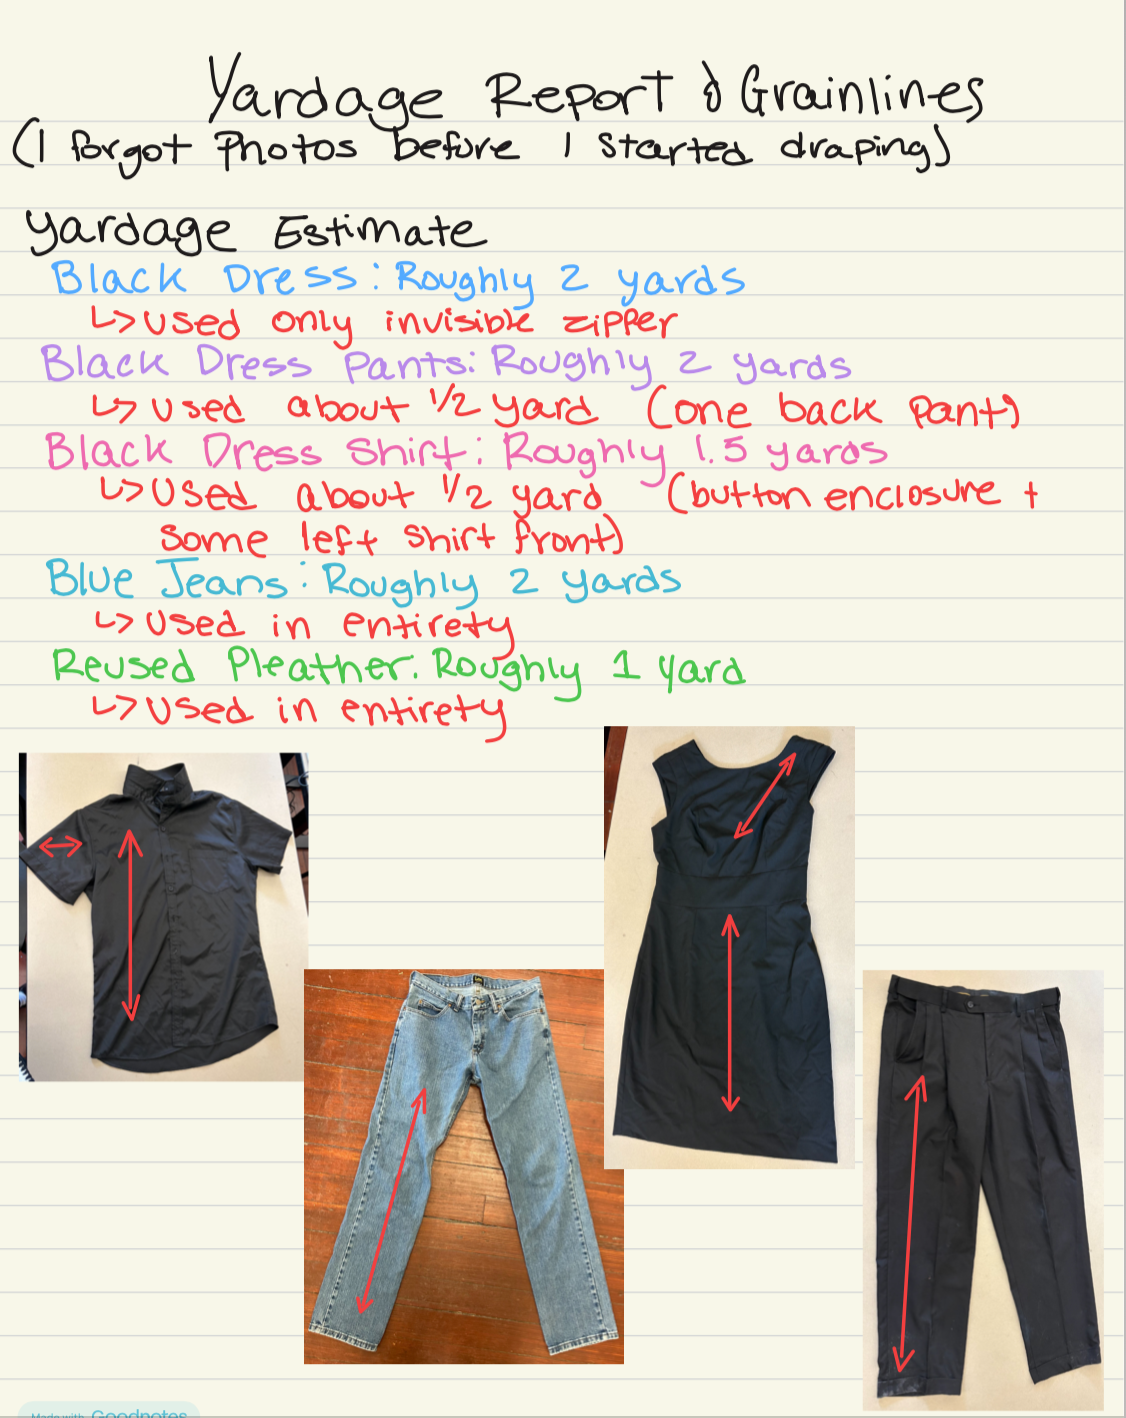 Yardage Report & Grainlines
(I forgot Photos before I started draping)
Yardage Estimate
Black Dress: Roughly 2 yards
↳ used only invisible zipper
Black Dress Pants: Roughly 2 yards
↳ used about 1/2 yard (one back pant)
Black Dress Shirt: Roughly 1.5 yards
↳ Used about 1/2 yard (button enclosure +
some left shirt front)
Blue Jeans: Roughly 2 yards
↳ Used in entirety
Reused Pleather: Roughly 1 yard
↳ Used in entirety
Made with Goodnotes